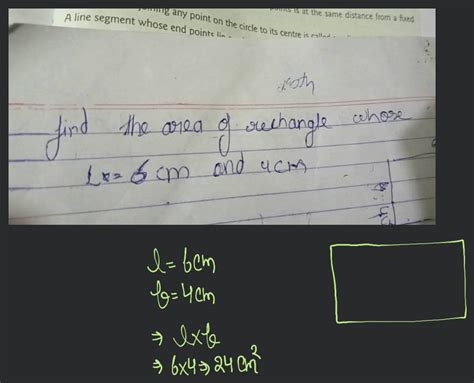 joining any point on the circle to its centre is called
points is at the same distance from a fixed
A line segment whose end points lie
math
find the area of rechangle whose
L x = 6 cm and 4cm
l = 6cm
b = 4cm
⇒ l×b
⇒ 6×4 ⇒ 24 cm²